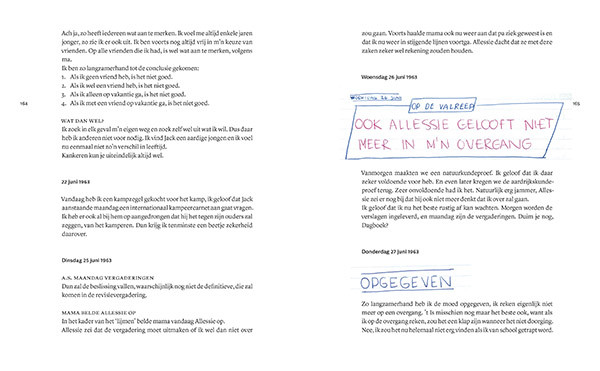 Ach ja, zo heeft iedereen wat aan te merken. Ik voel me altijd enkele jaren
jonger, zo zie ik er ook uit. Ik ben voorts nog altijd vrij in m'n keuze van
vrienden. Op alle vrienden die ik had, is wel wat aan te merken, volgens
ma.
Ik ben zo langzamerhand tot de conclusie gekomen:
1. Als ik geen vriend heb, is het niet goed.
2. Als ik wel een vriend heb, is het niet goed.
3. Als ik alleen op vakantie ga, is het niet goed.
4. Als ik met een vriend op vakantie ga, is het niet goed.
164
WAT DAN WEL?
Ik zoek in elk geval m'n eigen weg en zoek zelf wel uit wat ik wil. Dus daar
heb ik anderen niet voor nodig. Ik vind Jack een aardige jongen en ik voel
nu eenmaal niet zo'n verschil in leeftijd.
Kankeren kun je uiteindelijk altijd wel.
22 juni 1963
Vandaag heb ik een kampzegel gekocht voor het kamp, ik geloof dat Jack
aanstaande maandag een internationaal kampeercarnet aan gaat vragen.
Ik heb er ook al bij hem op aangedrongen dat hij het tegen zijn ouders zal
zeggen, van het kamperen. Dan krijg ik tenminste een beetje zekerheid
daarover.
Dinsdag 25 juni 1963
A.S. MAANDAG VERGADERINGEN
Dan zal de beslissing vallen, waarschijnlijk nog niet de definitieve, die zal
komen in de revisievergadering.
MAMA BELDE ALLESSIE OP
In het kader van het 'lijmen' belde mama vandaag Allessie op.
Allessie zei dat de vergadering moet uitmaken of ik wel dan niet over
zou gaan. Voorts haalde mama ook nu weer aan dat pa ziek geweest is en
dat ik nu weer in stijgende lijnen voortga. Allessie dacht dat ze met deze
zaken zeker wel rekening zouden houden.
Woensdag 26 juni 1963
WOENSDAG 26 JUNI
OP DE VALREEP
165
OOK ALLESSIE GELOOFT NIET
MEER IN M'N OVERGANG
Vanmorgen maakten we een natuurkundeproef. Ik geloof dat ik daar
zeker voldoende voor heb. En even later kregen we de aardrijkskunde-
proef terug. Zeer onvoldoende had ik het. Natuurlijk erg jammer, Alles-
sie zei er nog bij dat hij ook niet meer denkt dat ik over zal gaan.
Ik geloof dat ik nu het beste rustig af kan wachten. Morgen worden de
verslagen ingeleverd, en maandag zijn de vergaderingen. Duim je nog,
Dagboek?
Donderdag 27 juni 1963
OPGEGEVEN
Zo langzamerhand heb ik de moed opgegeven, ik reken eigenlijk niet
meer op een overgang. 't Is misschien nog maar het beste ook, want als
ik op de overgang reken, zou het een klap zijn wanneer het niet doorging.
Nee, ik zou het nu helemaal niet erg vinden als ik van school getrapt word.